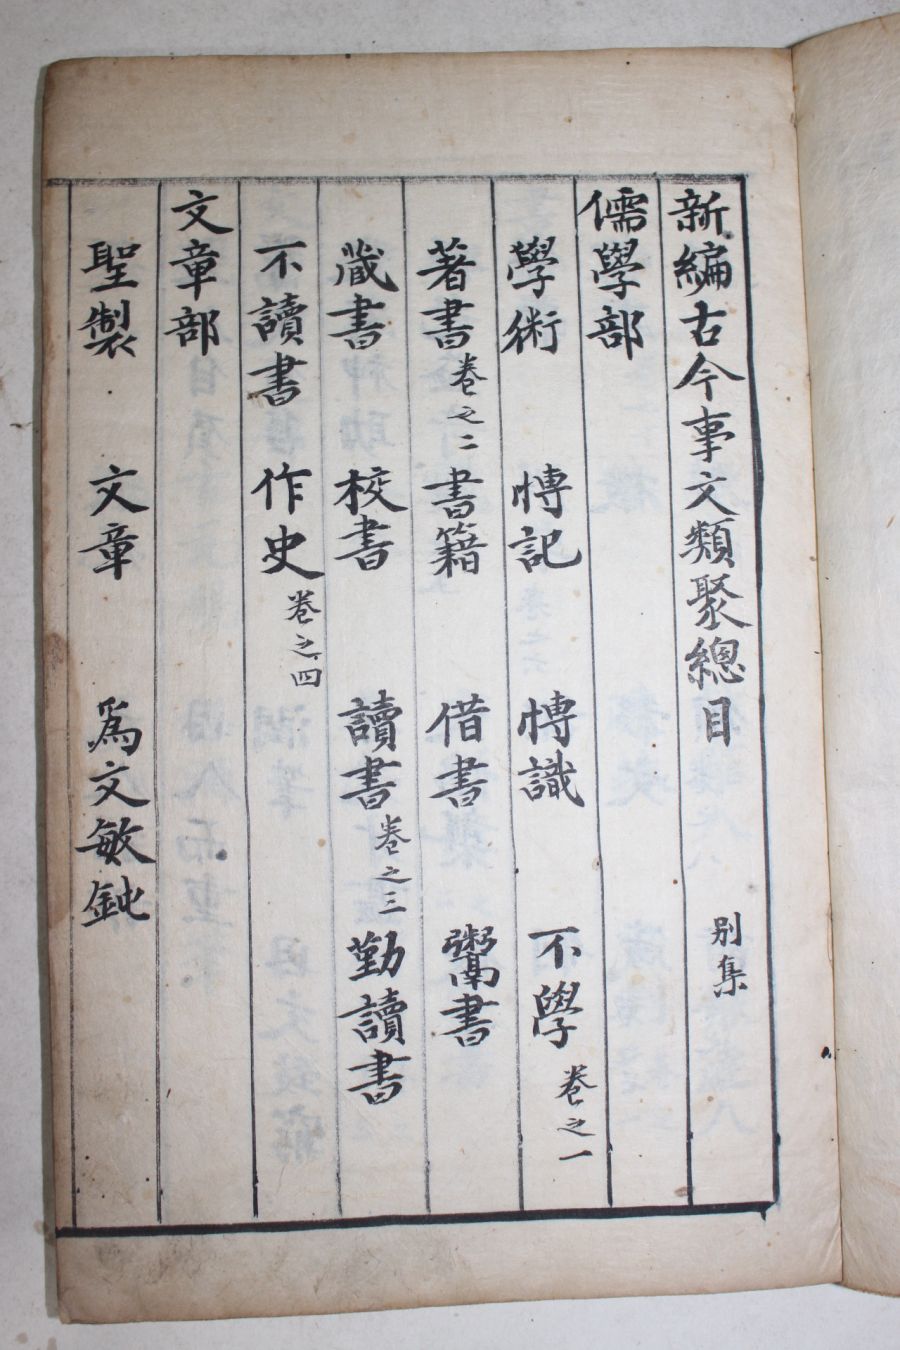 新編古今事文類聚總目 別集
儒學部
學術 愽記 愽識 不學 卷之一
著書 卷之二 書籍 借書 鬻書
蔵書 校書 讀書 卷之三 勤讀書
不讀書 作史 卷之四
文章部
聖製 文章 爲文敏鈍